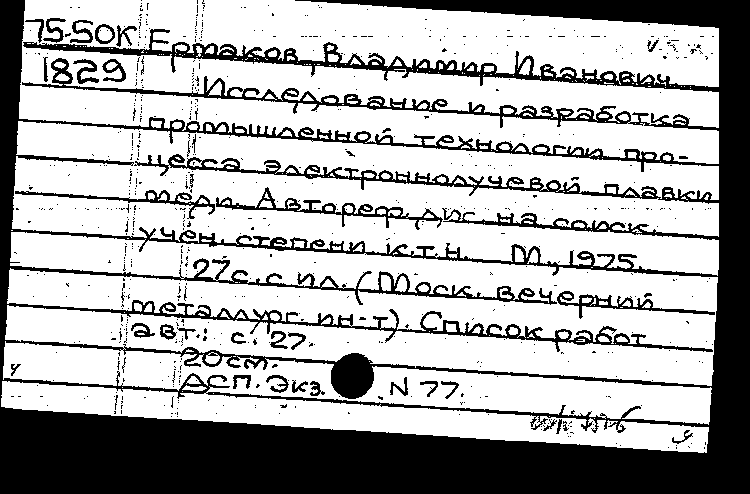 75-50К Ермаков, Владимир Иванович.
1829
Исследование и разработка
промышленной технологии про-
цесса электроннолучевой плавки
меди. Автореф. дис. на соиск.
учен. степени к.т.н. М., 1975.
27с. с ил. (Моск. вечерний
металлург. ин-т). Список работ
авт.: с. 27.
20см.
АСП. Экз. N 77.